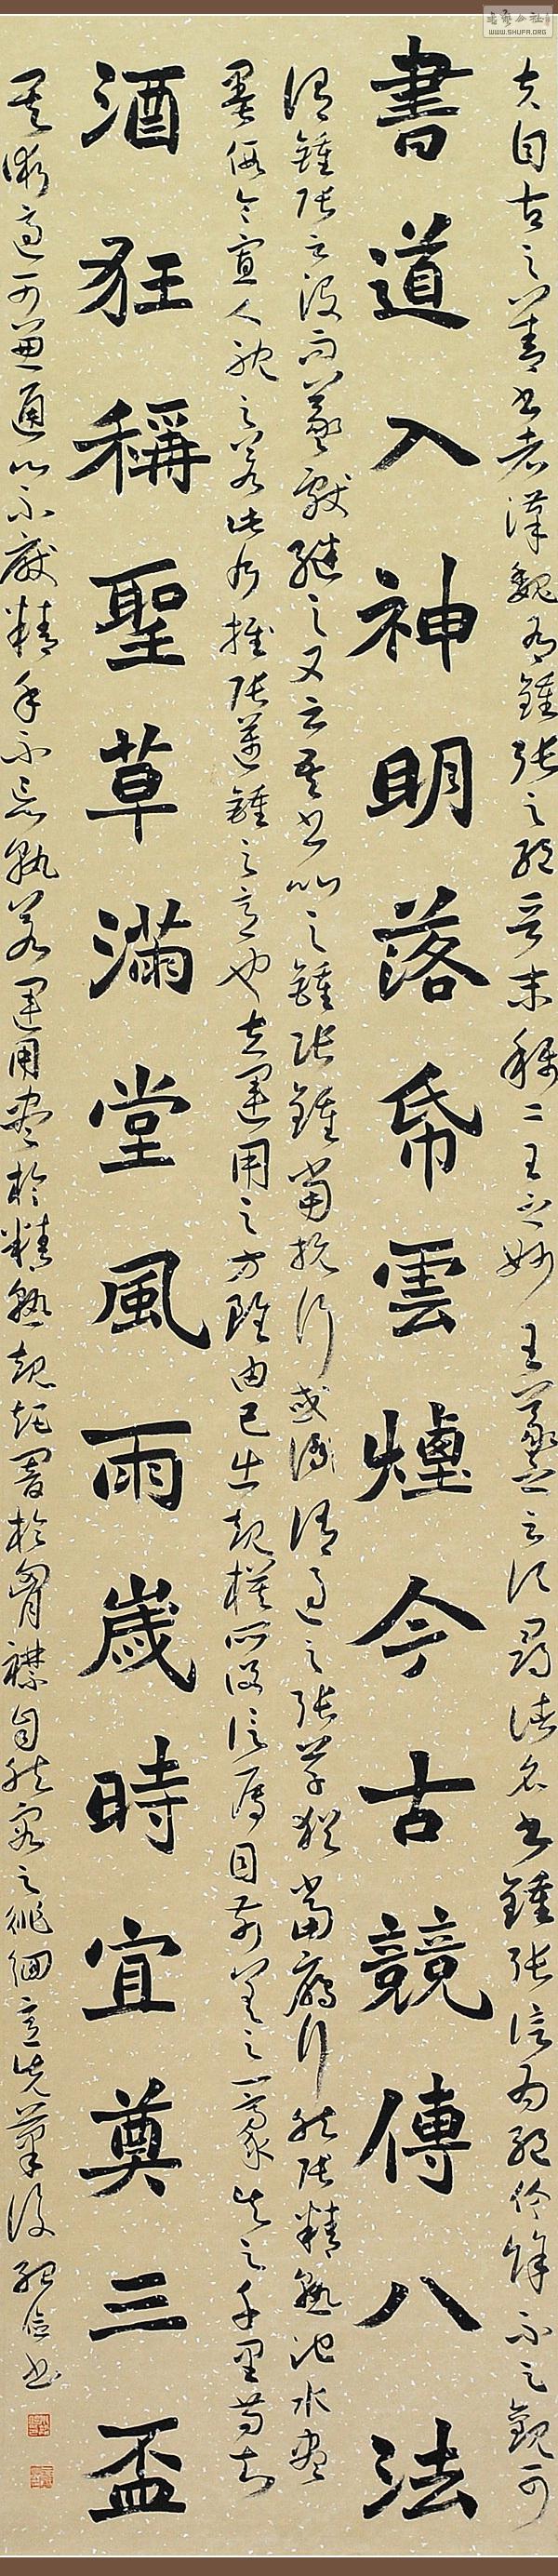 夫自古之善書者漢魏有鍾張之絕晉末稱二王之妙王羲之云頃尋諸名書鍾張信為絕倫餘不足觀可
書道入神明落帋雲煙今古競傳八法
謂鍾張云沒而羲獻繼之又云吾書比之鍾張鍾當抗行或謂過之張草猶當雁行然張精熟池水盡
墨假令寡人耽之若此乃推張邁鍾之意也夫運用之方雖由己出規模所設信屬目前差之一豪失之千里苟知
酒狂稱聖草滿堂風雨歲時宜奠三盃
其術適可兼通心不厭精手不忘熟若運用盡於精熟規矩闇於胸襟自然容與徘徊意先筆後 書
WWW.SHUFA.ORG